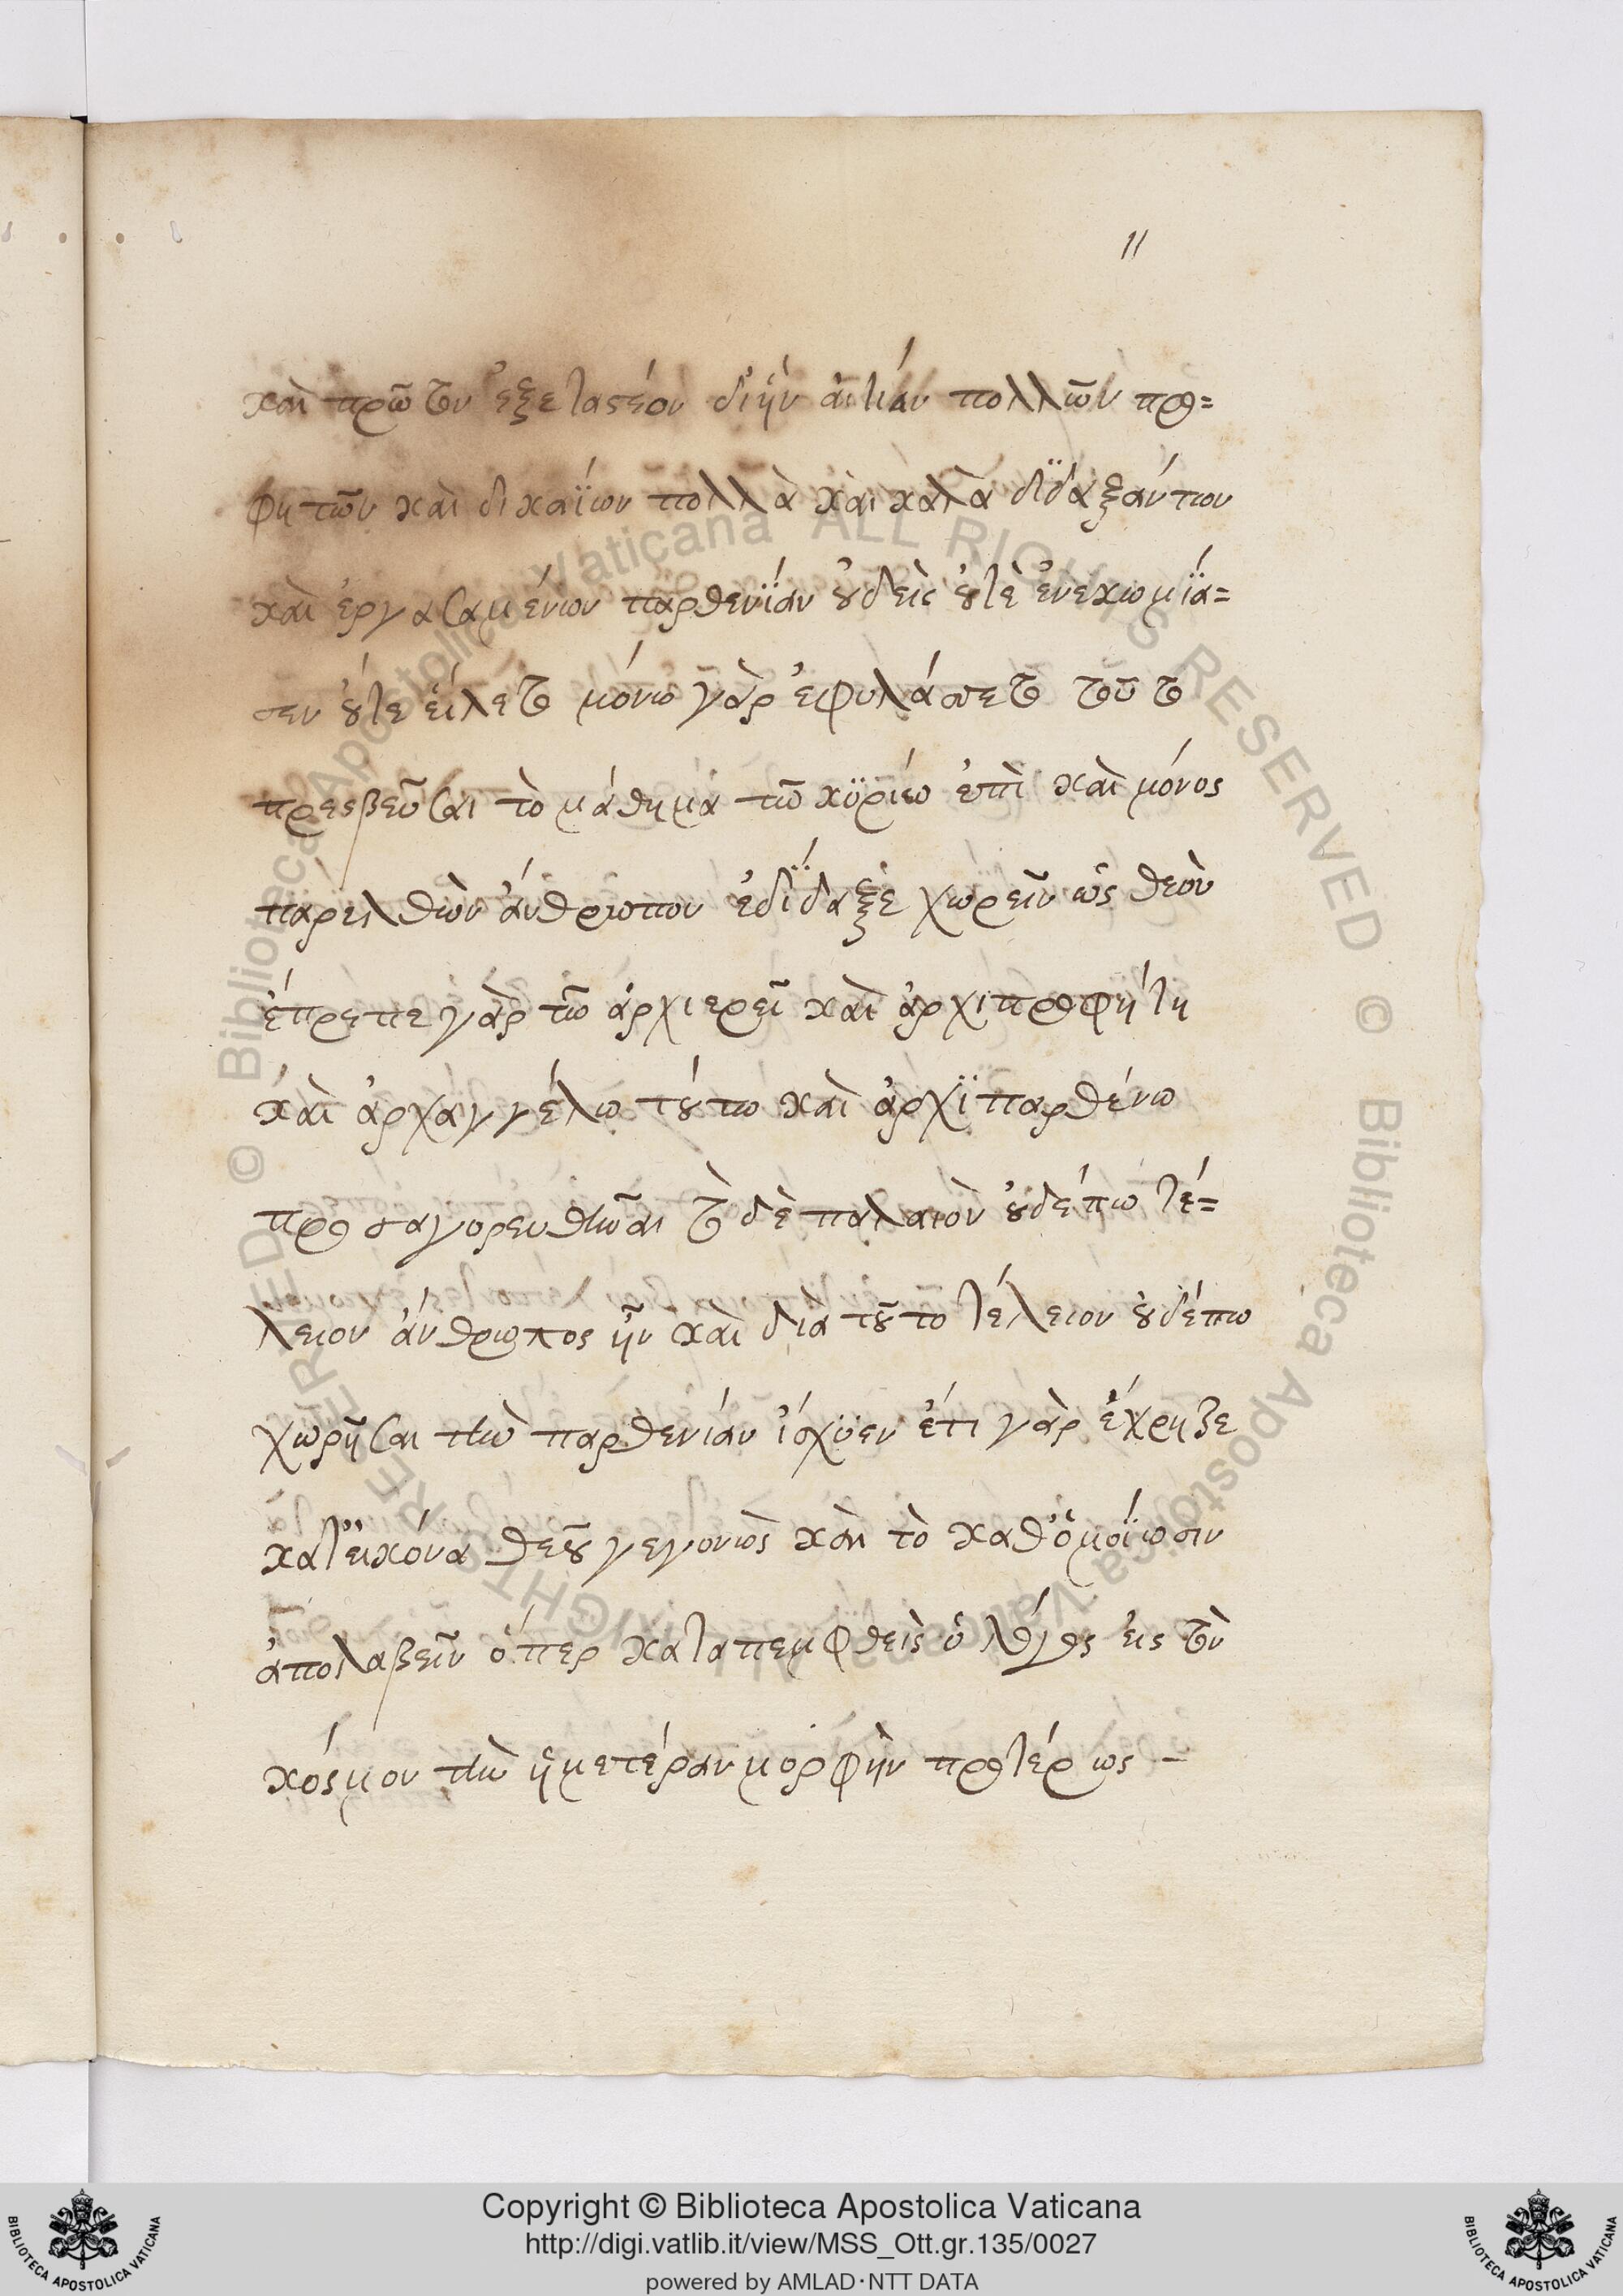 11
καὶ πρῶτον ἐξεταστέον δι' ἣν αἰτίαν πολλῶν προ=
φητῶν καὶ δικαΐων πολλὰ καὶ καλὰ διδαξάντων
καὶ ἐργασαμένων παρθενΐαν οὐδεὶς οὔτε ἐνεκωμΐα=
σεν οὔτε εἵλετο μόνω γὰρ ἐφυλάττετο τοῦτο
πρεσβεῦσαι τὸ μάθημα τῶ κϋρίω ἐπὶ καὶ μόνος
παρελθὼν ἄνθρωπον ἐδίδαξε χωρεῖν ὡς θεὸν
ἔπρεπε γὰρ τῶ ἀρχιερεῖ καὶ ἀρχιπροφήτη
καὶ ἀρχαγγέλω τούτω καὶ ἀρχϊπαρθένω
προσαγορευθῆναι τὸ δὲ παλαιὸν οὐδέπω τέ=
λειον ἄνθρωπος ἦν καὶ διὰ τοῦτο τέλειον οὐδέπω
χωρῆσαι τὴν παρθενίαν ἴσχϋεν ἔτι γὰρ ἔχρηζε
κατ' εἰκόνα θεοῦ γεγονὼς καὶ τὸ καθ' ὁμοΐωσιν
ἀπολαβεῖν ὅπερ καταπεμφθεὶς ὁ λόγος εἰς τὸν
κόσμον τὴν ἡμετέραν μορφὴν προτέρως –
Copyright © Biblioteca Apostolica Vaticana
http://digi.vatlib.it/view/MSS_Ott.gr.135/0027
powered by AMLAD·NTT DATA
BIBLIOTECA APOSTOLICA VATICANA
BIBLIOTECA APOSTOLICA VATICANA
© Biblioteca Apostolica Vaticana ALL RIGHTS RESERVED © Biblioteca Apostolica Vaticana ALL RIGHTS RESERVED